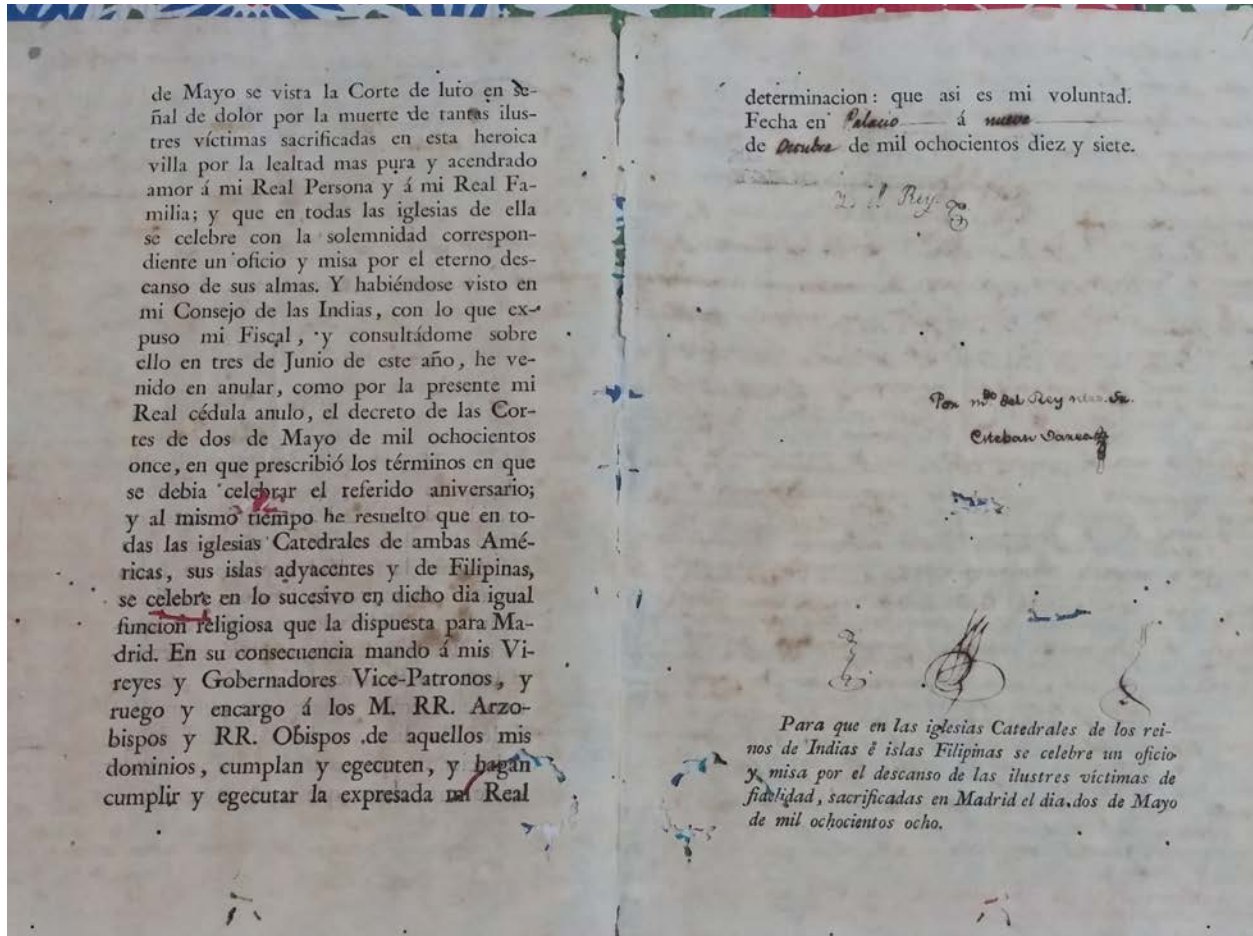 de Mayo se vista la Corte de luto en se-
ñal de dolor por la muerte de tantas ilus-
tres víctimas sacrificadas en esta heroica
villa por la lealtad mas pura y acendrado
amor á mi Real Persona y á mi Real Fa-
milia; y que en todas las iglesias de ella
se celebre con la solemnidad correspon-
diente un oficio y misa por el eterno des-
canso de sus almas. Y habiéndose visto en
mi Consejo de las Indias, con lo que ex-
puso mi Fiscal, y consultádome sobre
ello en tres de Junio de este año, he ve-
nido en anular, como por la presente mi
Real cédula anulo, el decreto de las Cor-
tes de dos de Mayo de mil ochocientos
once, en que prescribió los términos en que
se debia celebrar el referido aniversario;
y al mismo tiempo he resuelto que en to-
das las iglesias Catedrales de ambas Amé-
ricas, sus islas adyacentes y de Filipinas,
se celebre en lo sucesivo en dicho dia igual
funcion religiosa que la dispuesta para Ma-
drid. En su consecuencia mando á mis Vi-
reyes y Gobernadores Vice-Patronos, y
ruego y encargo á los M. RR. Arzo-
bispos y RR. Obispos de aquellos mis
dominios, cumplan y egecuten, y hagan
cumplir y egecutar la expresada mi Real
determinacion: que asi es mi voluntad.
Fecha en Palacio á nueve
de Octubre de mil ochocientos diez y siete.
Yo el Rey
Por mdo del Rey ntro. Sr.
Esteban Varea
Para que en las iglesias Catedrales de los rei-
nos de Indias é islas Filipinas se celebre un oficio
y misa por el descanso de las ilustres víctimas de
fidelidad, sacrificadas en Madrid el dia dos de Mayo
de mil ochocientos ocho.